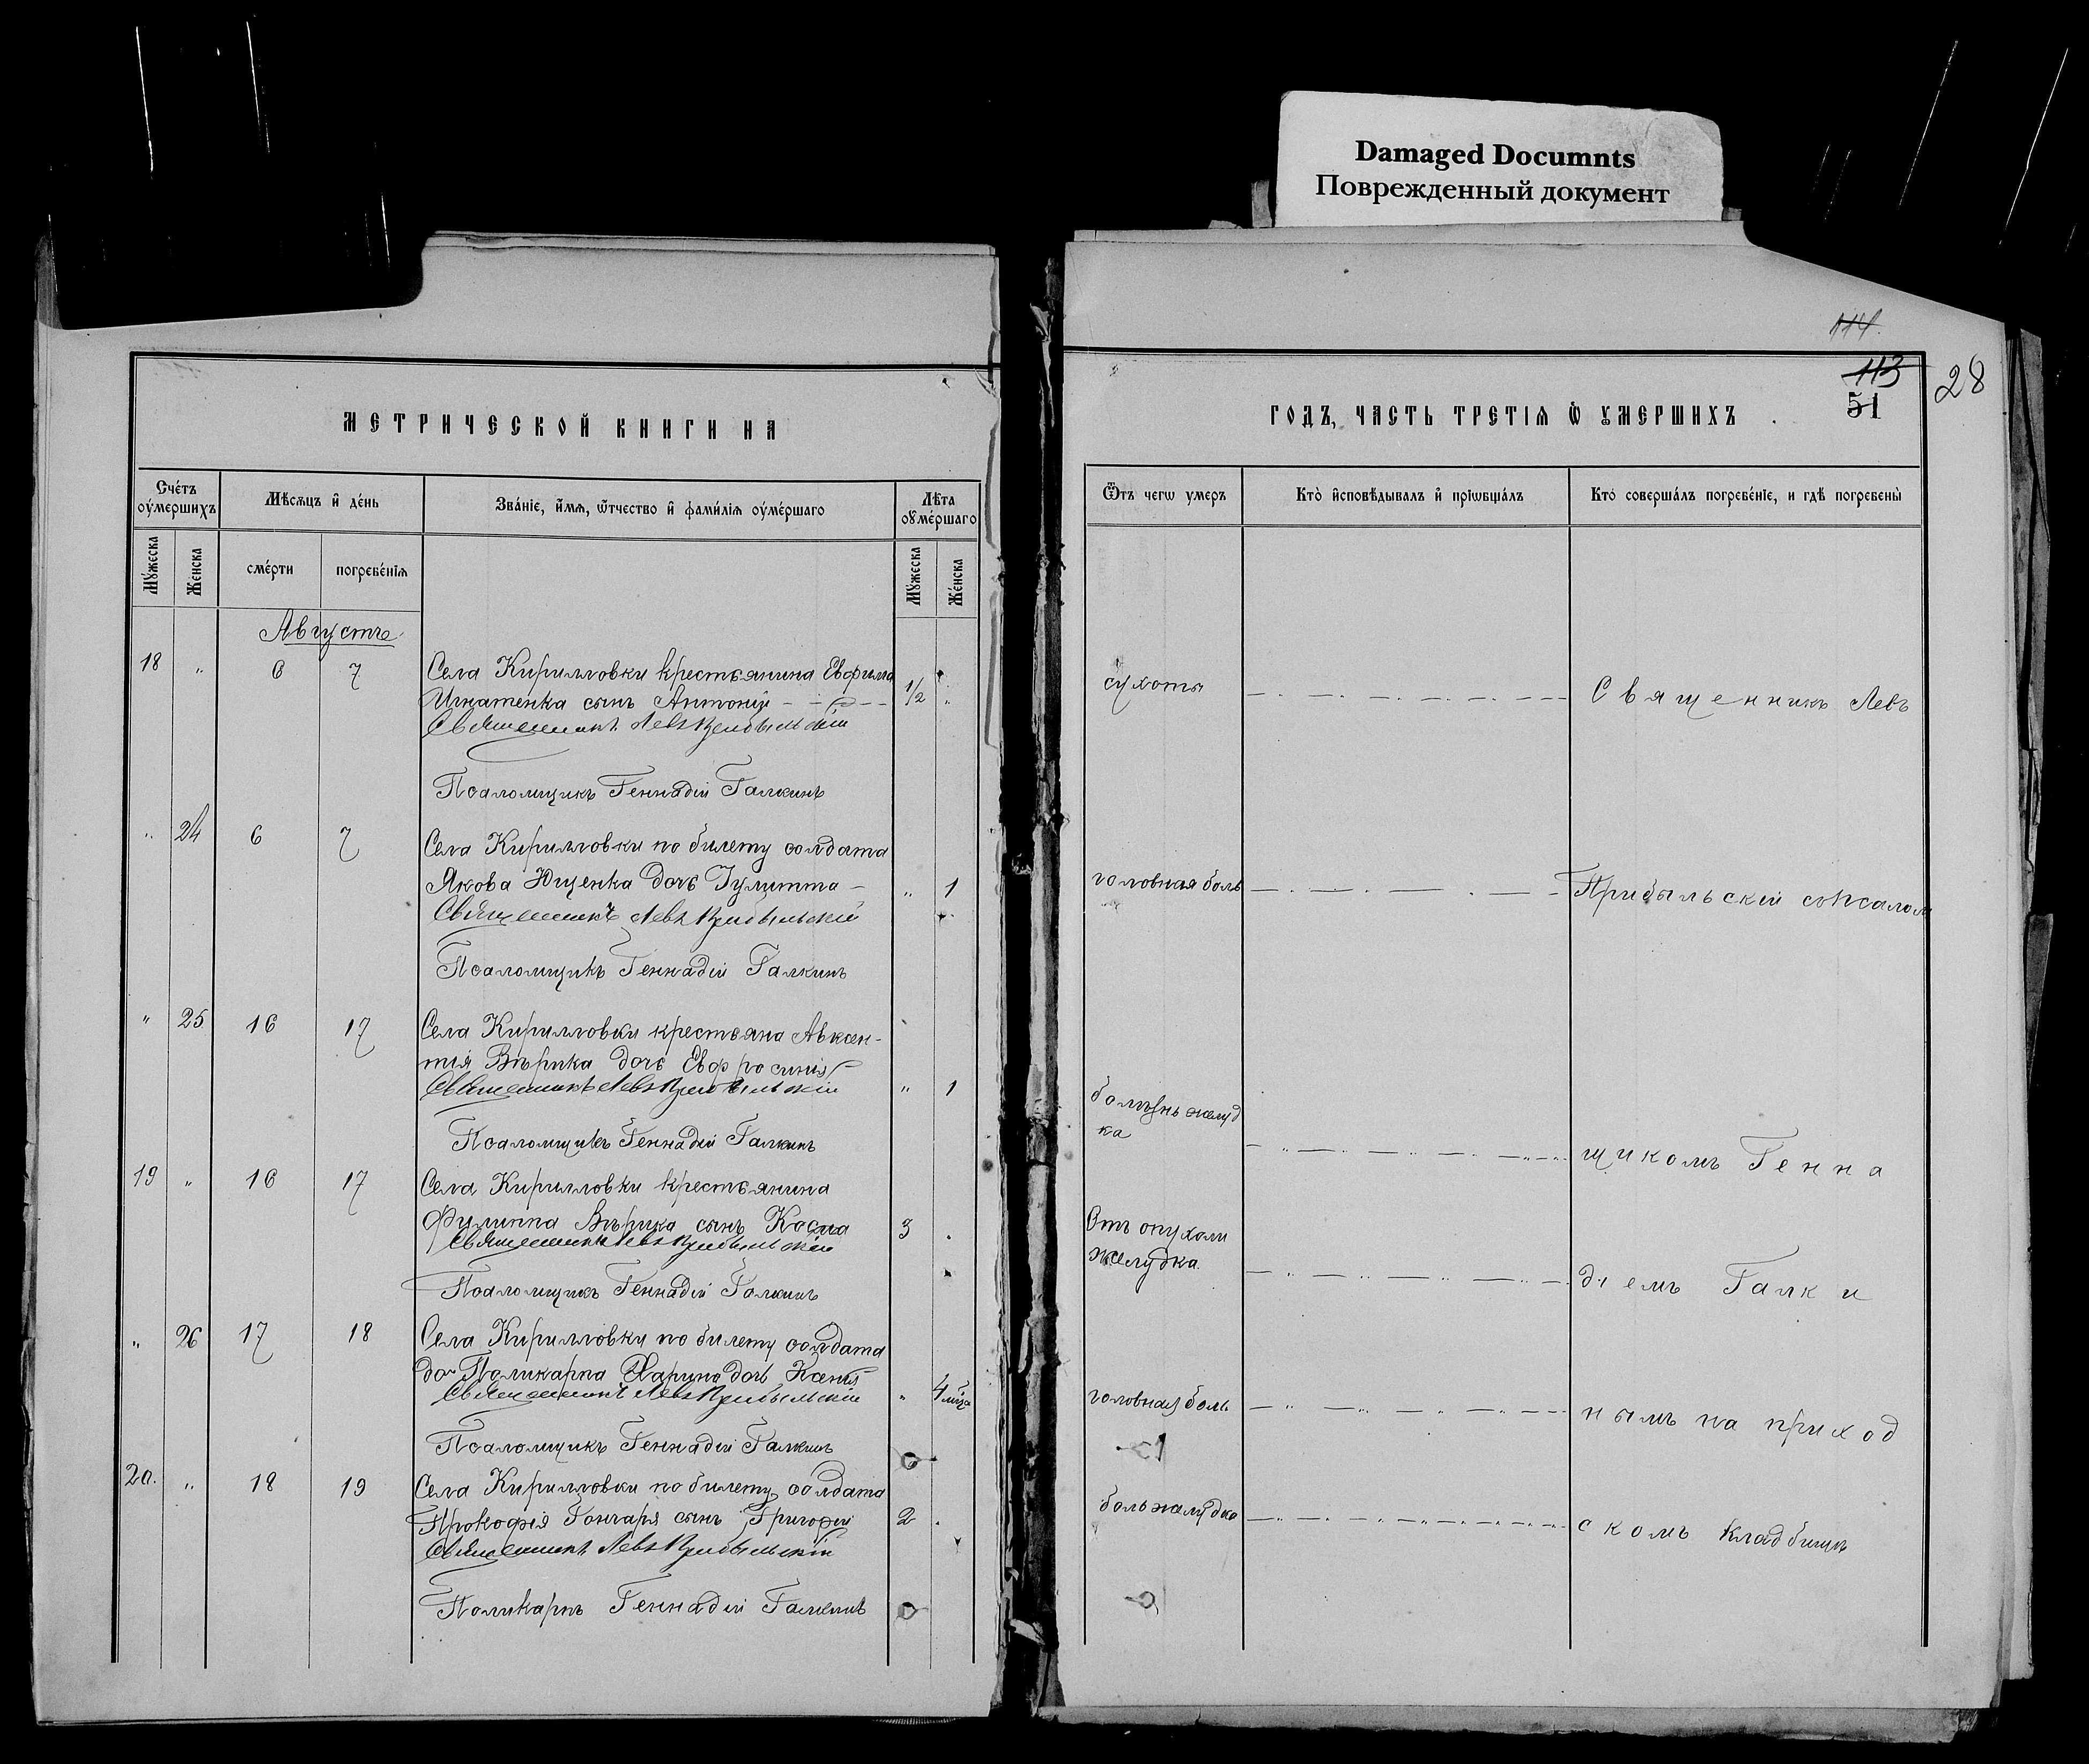 Damaged Documnts
Поврежденный документ
114.
113
51
28
МЕТРИЧЕСКОЙ КНИГИ НА
ГОДЪ, ЧАСТЬ ТРЕТІѦ Ѽ ꙊМЕРШИХЪ
Сче́тъ оу҆́мершихъ
Мѣсѧцъ и҆ де́нь
Зва́нїе, и҆́мѧ, ѻ҆́тчество и҆ фами́лїѧ оу҆ме́ршаго
Лѣ́та оу҆ме́ршаго
Мꙋ́жеска
Же́нска
сме́рти
погребе́нїѧ
Мꙋ́жеска
Же́нска
Ѿтъ чегѡ умеръ
Кто̀ и҆сповѣ́дывалъ и҆ прїѡбща́лъ
Кто̀ соверша́лъ погребе́нїе, и гдѣ̀ погребены̀
Августъ
18 " 6 7
Села Кирилловки крестьянина Евфима
Игнатенка сынъ Антоній 1/2 "
Священникъ Левъ Прибыльскій
Псаломщикъ Геннадій Галкинъ
сухоты
Священникъ Левъ
" 24 6 7
Села Кирилловки по билету солдата
Якова Ющенка дочь Іулитта " 1
Священникъ Левъ Прибыльскій
Псаломщикъ Геннадій Галкинъ
головная боль
Прибыльскій съ псалом
" 25 16 17
Села Кирилловки крестьяна Авксен-
тія Вѣрика дочь Евфросинія
Священникъ Левъ Прибыльскій " 1
Псаломщикъ Геннадій Галкинъ
болѣзнь желуд
ка
щикомъ Генна
19 " 16 17
Села Кирилловки крестьянина
Филиппа Вѣрика сынъ Косма 3
Священникъ Левъ Прибыльскій
Псаломщикъ Геннадій Галкинъ
Отъ опухоли
желудка
діемъ Галки
" 26 17 18
Села Кирилловки по билету солдата
Поликарпа дочь Ксенія
Священникъ Левъ Прибыльскій " 4 мѣс
Псаломщикъ Геннадій Галкинъ
головная боль
нымъ на приход
20. " 18 19
Села Кирилловки по билету солдата
Прокофія Гончаря сынъ Григорій 2
Священникъ Левъ Прибыльскій
Поликарпъ Геннадій Галкинъ
боль желудка
скомъ кладбищѣ